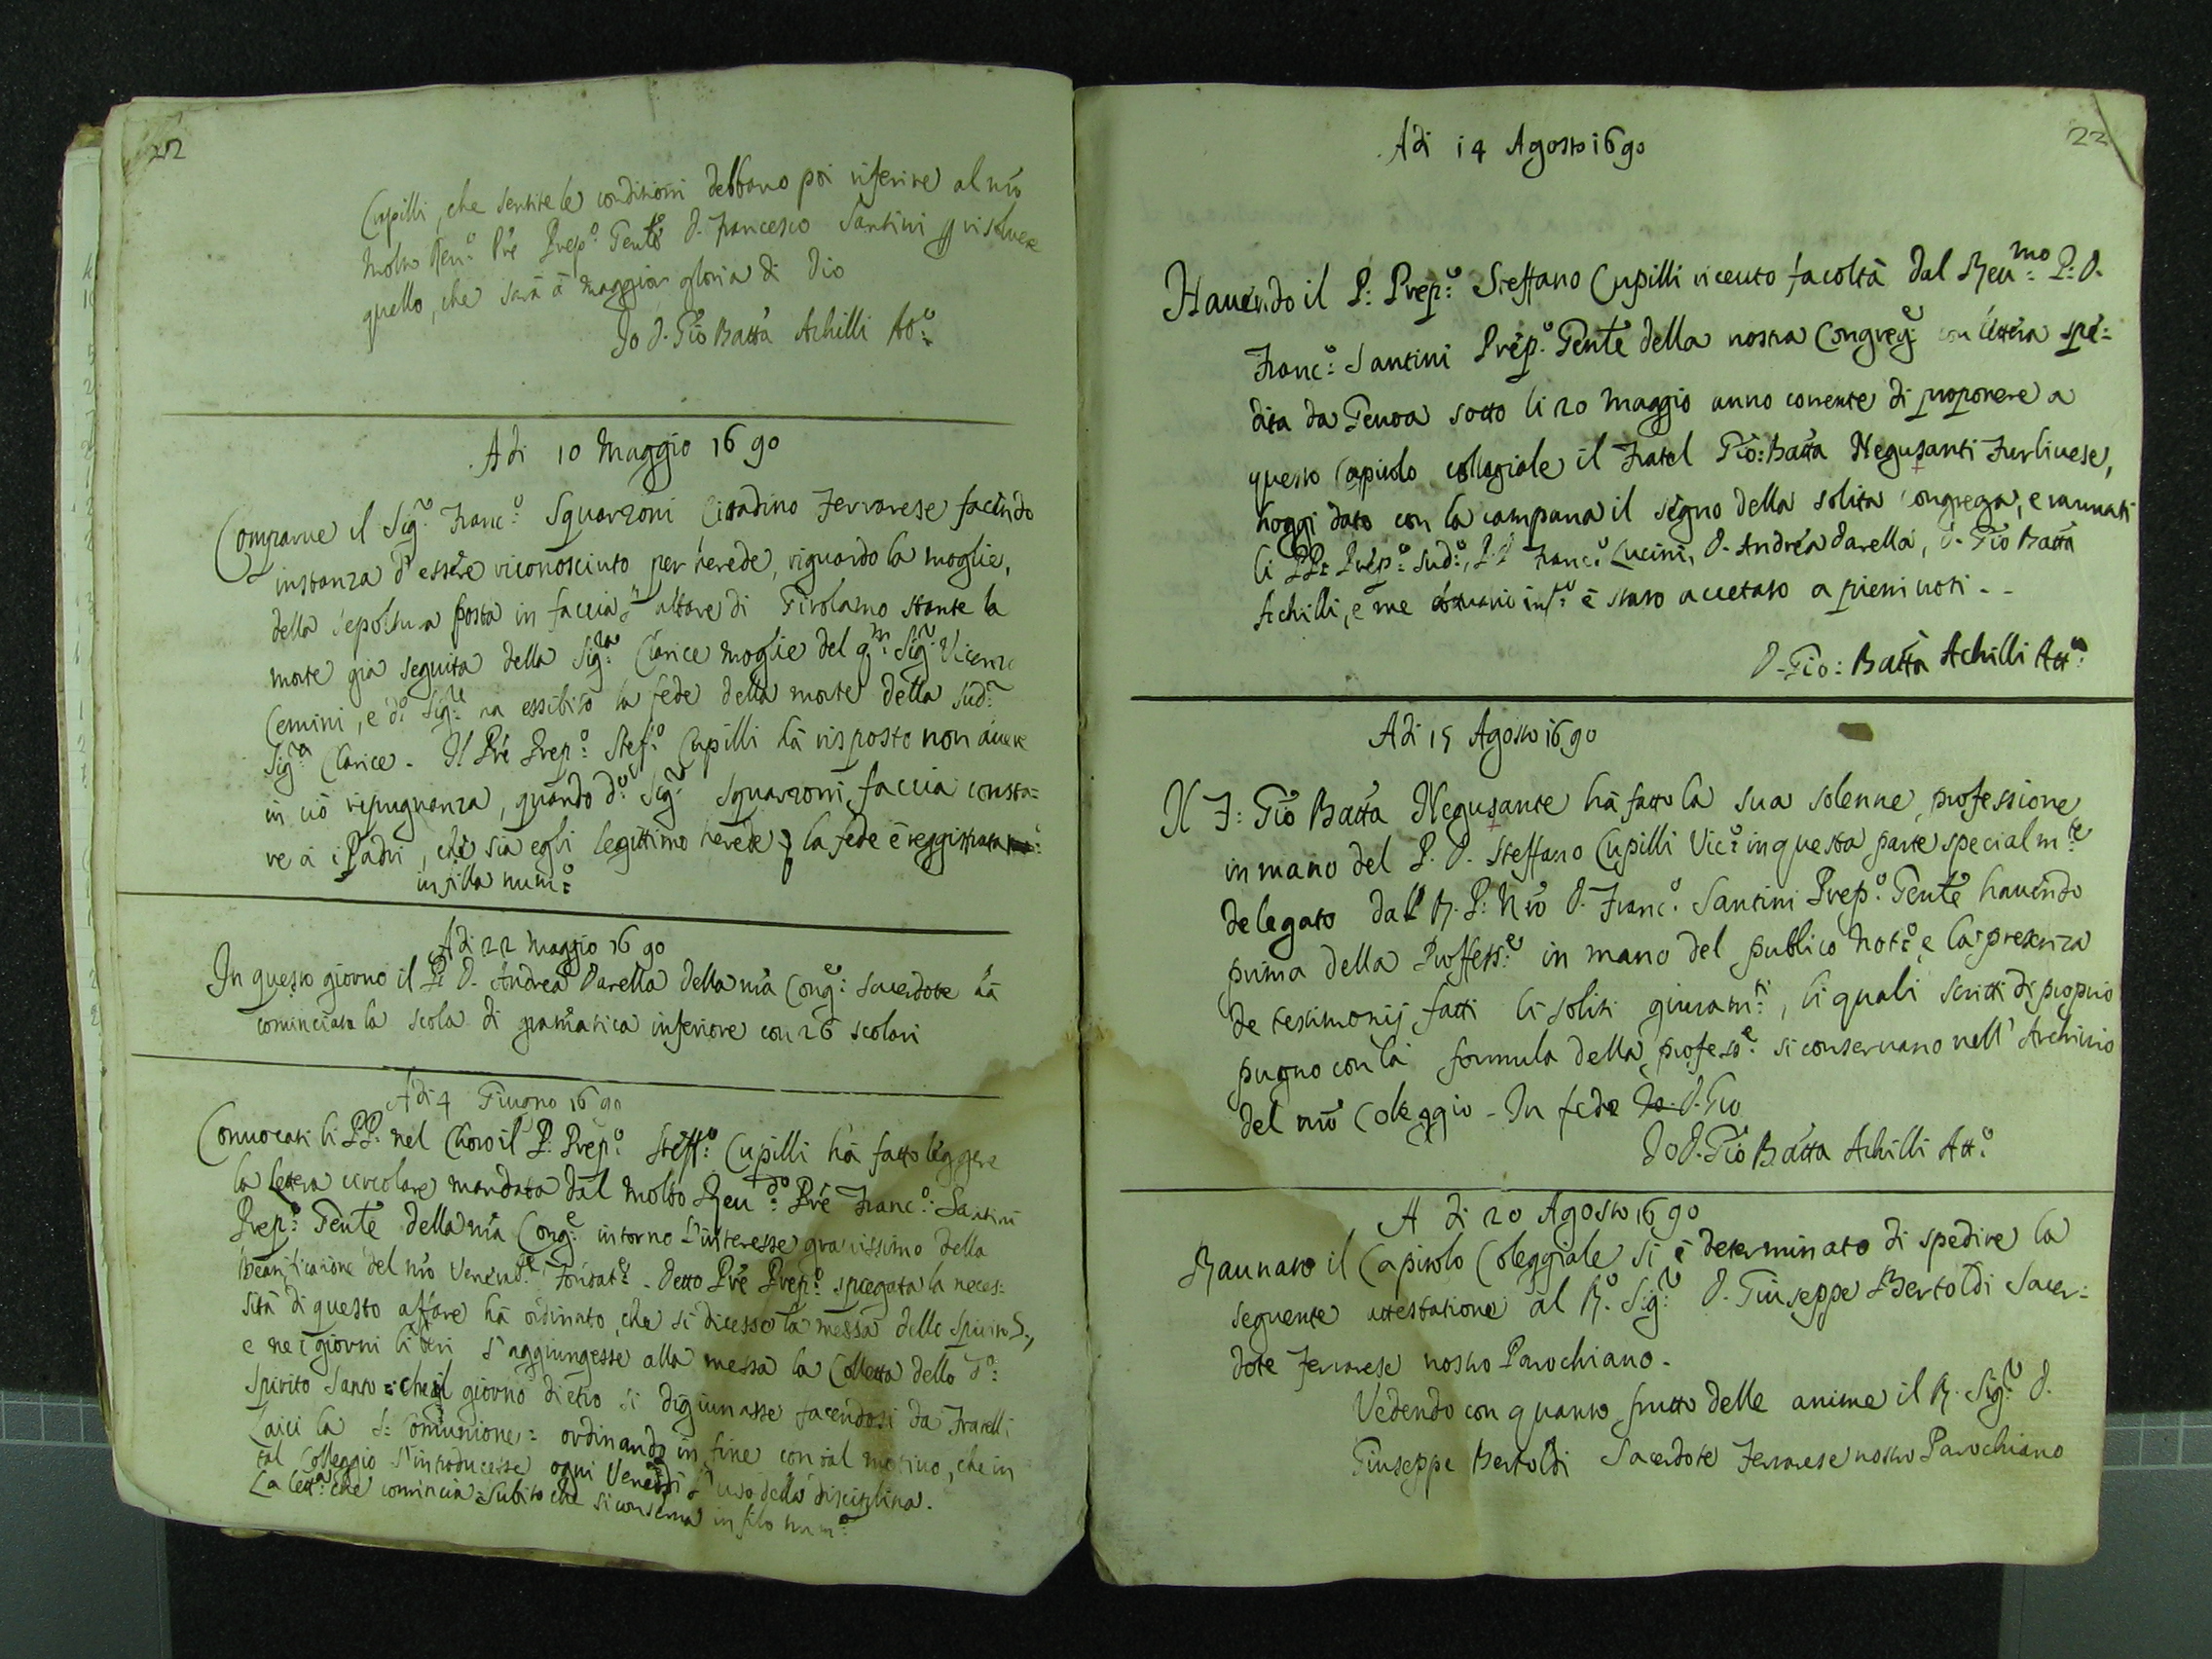 22
Cupilli, che sentite le conditioni debbano poi riferire al nrõ
Molto Reu:º Prê Prep:º Gentê D. Francesco Santini p risoluere
quello, che sarà à maggior gloria di Dio
Io D. Giõ Batta Achilli Att:º
Adi 10 Maggio 1690
Comparue il Sig:r Franc:º Squarzoni Cittadino Ferrarese facendo
instanza d'essere riconosciuto per herede, riguardo la moglie,
della sepoltura posta in faccia l'altare di Girolamo stante la
morte già seguita della Sig:ra Clarice moglie del q:m Sig:r Vicenzo
Cemini, e dº Sig:re ha essibito la fede della morte della sud:a
Sig:ra Clarice. Il Prê Prep:º Stef:º Cupilli hà risposto non auere
in ciò ripugnanza, quando d:º Sig:r Squarzoni faccia consta=
re à i Padri, che sia egli legittimo herede; la fede è reggistrata
in filla num:º
Adi 22 Maggio 1690
In questo giorno il P: D. Andrea Darella della nrã Cong:e Sacerdote hà
cominciata la scola di gramatica inferiore con 26 scolari
Adi 4 Giugno 1690
Conuocati li PP: nel Choro il P: Prep:º Steff:º Cupilli hà fatto leggere
la lettera circolare mandata dal Molto Reu:do Prê Franc:º Santini
Prep:º Gentê della nrã Cong:e intorno l'interesse grauissimo della
beatificatione del nrõ Venerd:e Fondat:e. Detto Prê Prep:º spiegata la neces:
sità di questo affare hà ordinato, che si dicesse la messa dello Spirito S.,
e ne i giorni liberi s'aggiungesse alla messa la Colletta dello
Spirito Santo: che il giorno dietro si digiunasse facendosi da Fratelli
Laici la S: Comunione: ordinando in fine con tal motiuo, che in
tal Colleggio s'introducesse ogni Venerdi l'uso della disciplina.
La lett:a che comincia: Subito che si conserua in filo num:º
22
Adi 14 Agosto 1690
Hauendo il P: Prep:º Steffano Cupilli riceuto facoltà dal Reu:mo P: D.
Franc:º Santini Prep:º Gentê della nostra Congreg:e con lettera spe=
dita da Genoa sotto li 20 Maggio anno corrente di proponere a
questo Capitolo collegiale il Fratel Giõ: Batta Negusanti Furlivese,
hoggi dato con la campana il segno della solita congrega, e raunati
li PP: Prep:º sud:º, P: D Franc:º Lucini, D. Andrea Darella, D. Giõ Batta
Achilli, e me attuario inf:º è stato accetato a pieni uoti. -
D. Gio: Batta Achilli Att:º
Adi 15 Agosto 1690
Il F: Giõ Batta Negusante hà fatto la sua solenne professione
in mano del P. D. Steffano Cupilli Vic:º in questa parte specialm:te
delegato dal R. P: Nrõ D. Franc:º Santini Prep:º Gentê hauendo
prima della Profess:e in mano del publico Not:º, e la presenza
de testimonij fatti li soliti giuram:ti, li quali scritti di proprio
pugno con la formula della profess:e si conseruano nell'Archiuio
del nrõ Coleggio - In fede Io D. Gio
Io D. Giõ Batta Achilli Att:º
A di 20 Agosto 1690
Raunato il Capitolo Coleggiale si è determinato di spedire la
seguente attestatione al R:º Sig:r D. Giuseppe Bertoldi Sacer=
dote Ferrarese nostro Parochiano.
Vedendo con quanto frutto delle anime il R. Sig:r D.
Giuseppe Bertoldi Sacerdote Ferrarese nostro Parochiano